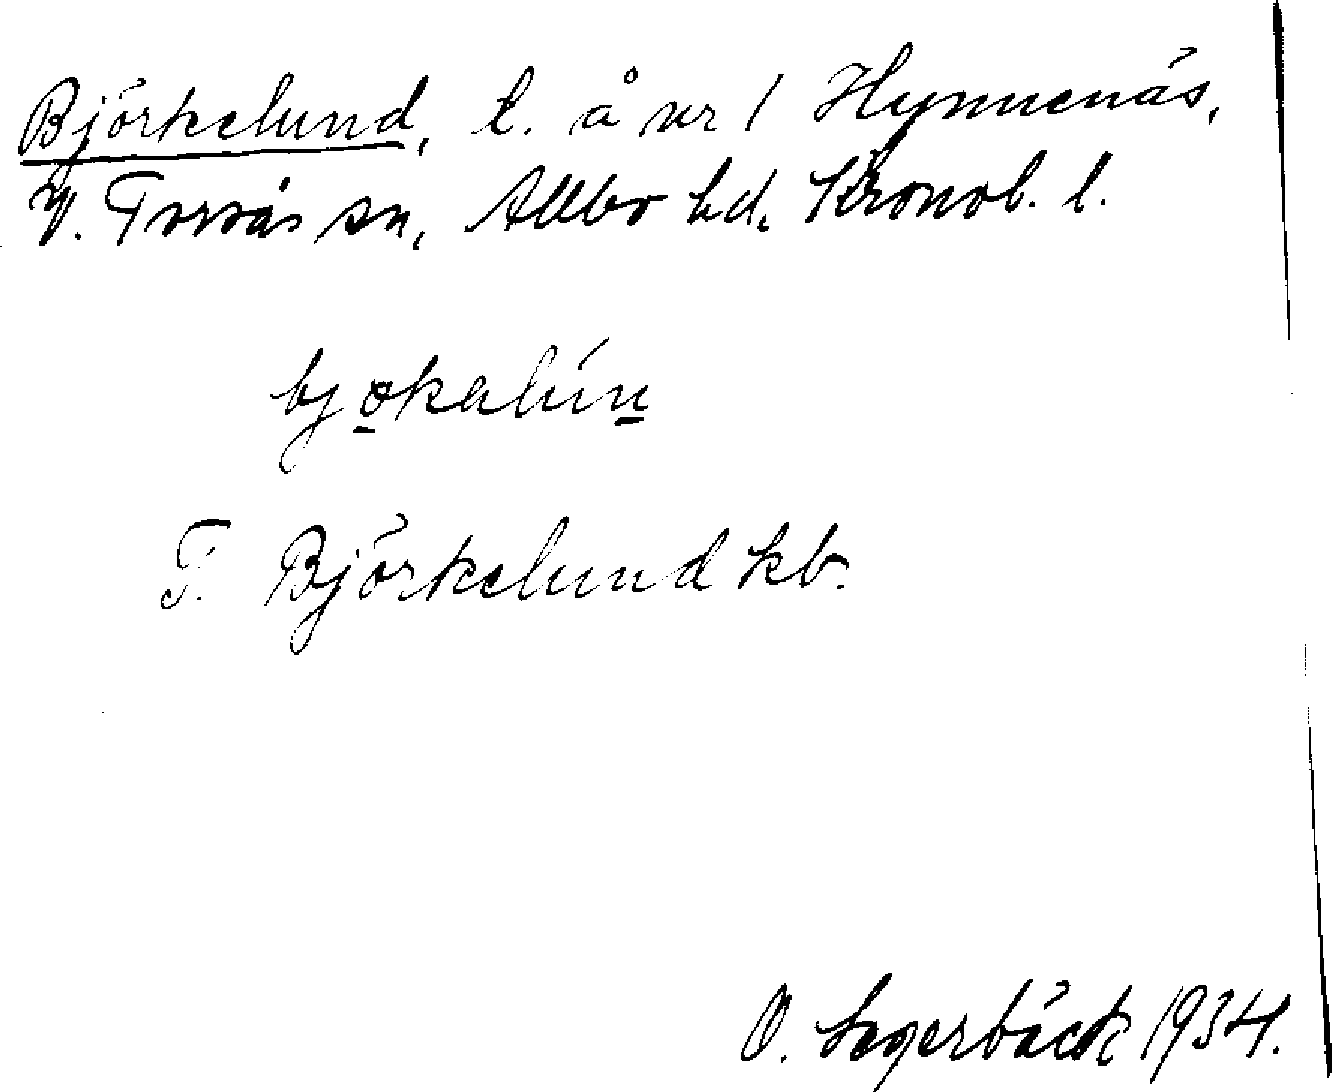 Björkelund, l. å nr 1 Hynnenäs,
V. Torsås sn, Allbo hd, Kronob. l.
bjokalún
F. Björkelund kb.
O. Segerbäck 1934.